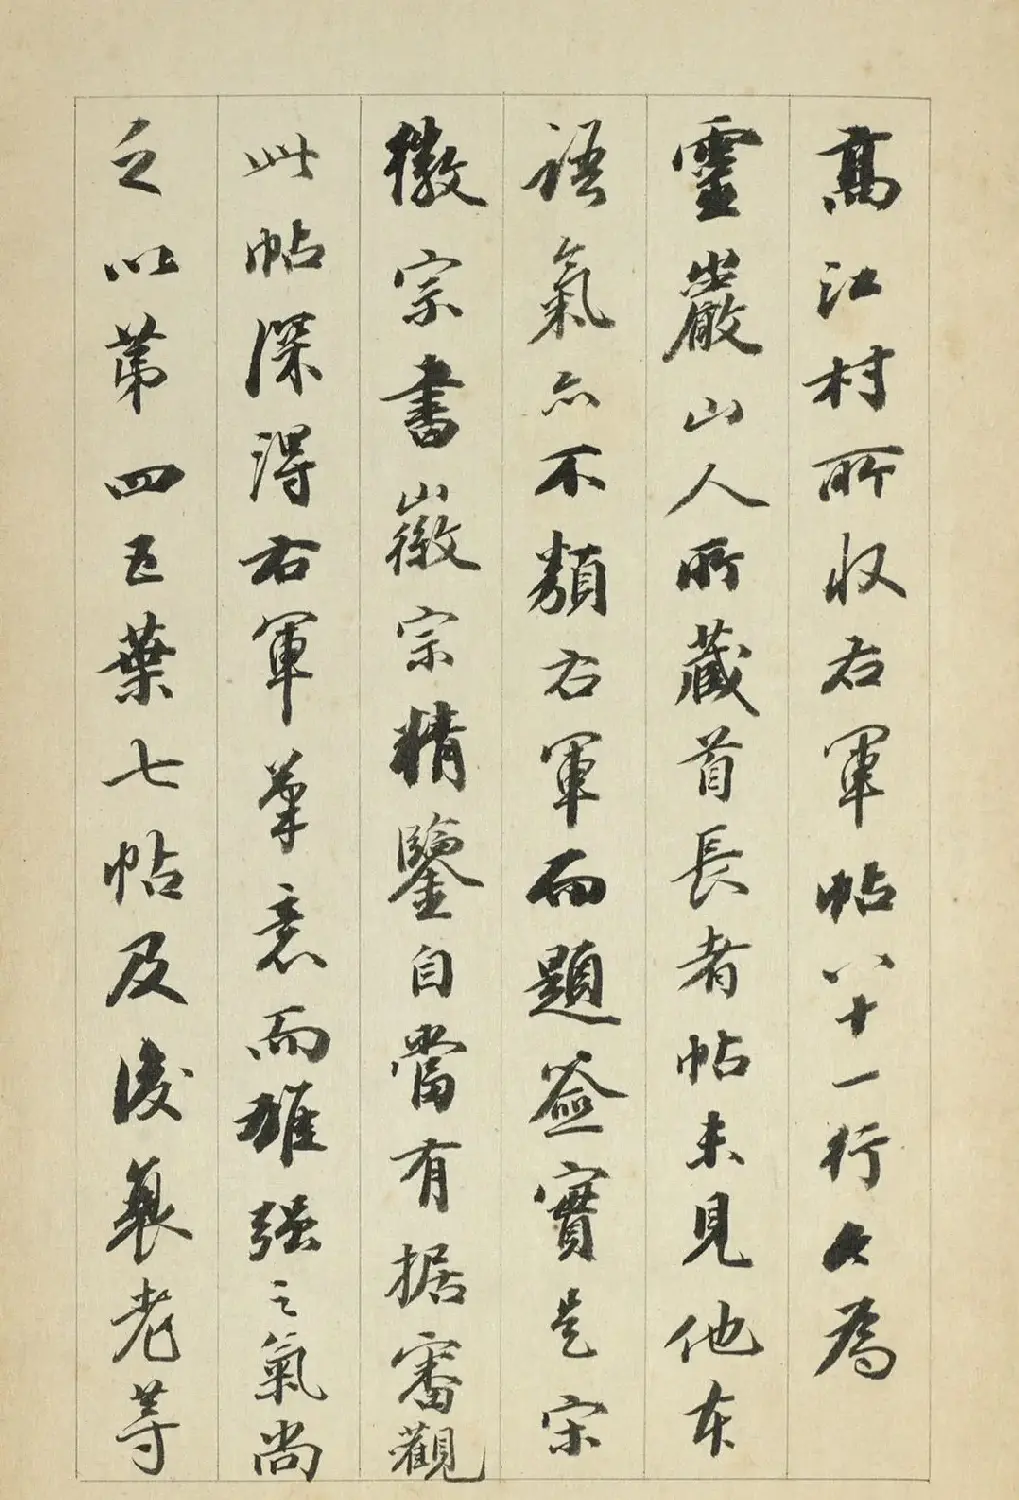 高江村所收右軍帖八十一行久為
靈巖山人所藏首長者帖未見他本
語氣亦不類右軍而題簽實是宋
徽宗書徽宗精鑒自當有据審觀
此帖深得右軍筆意而雄强之氣尚
乏以第四五葉七帖及後衰老等